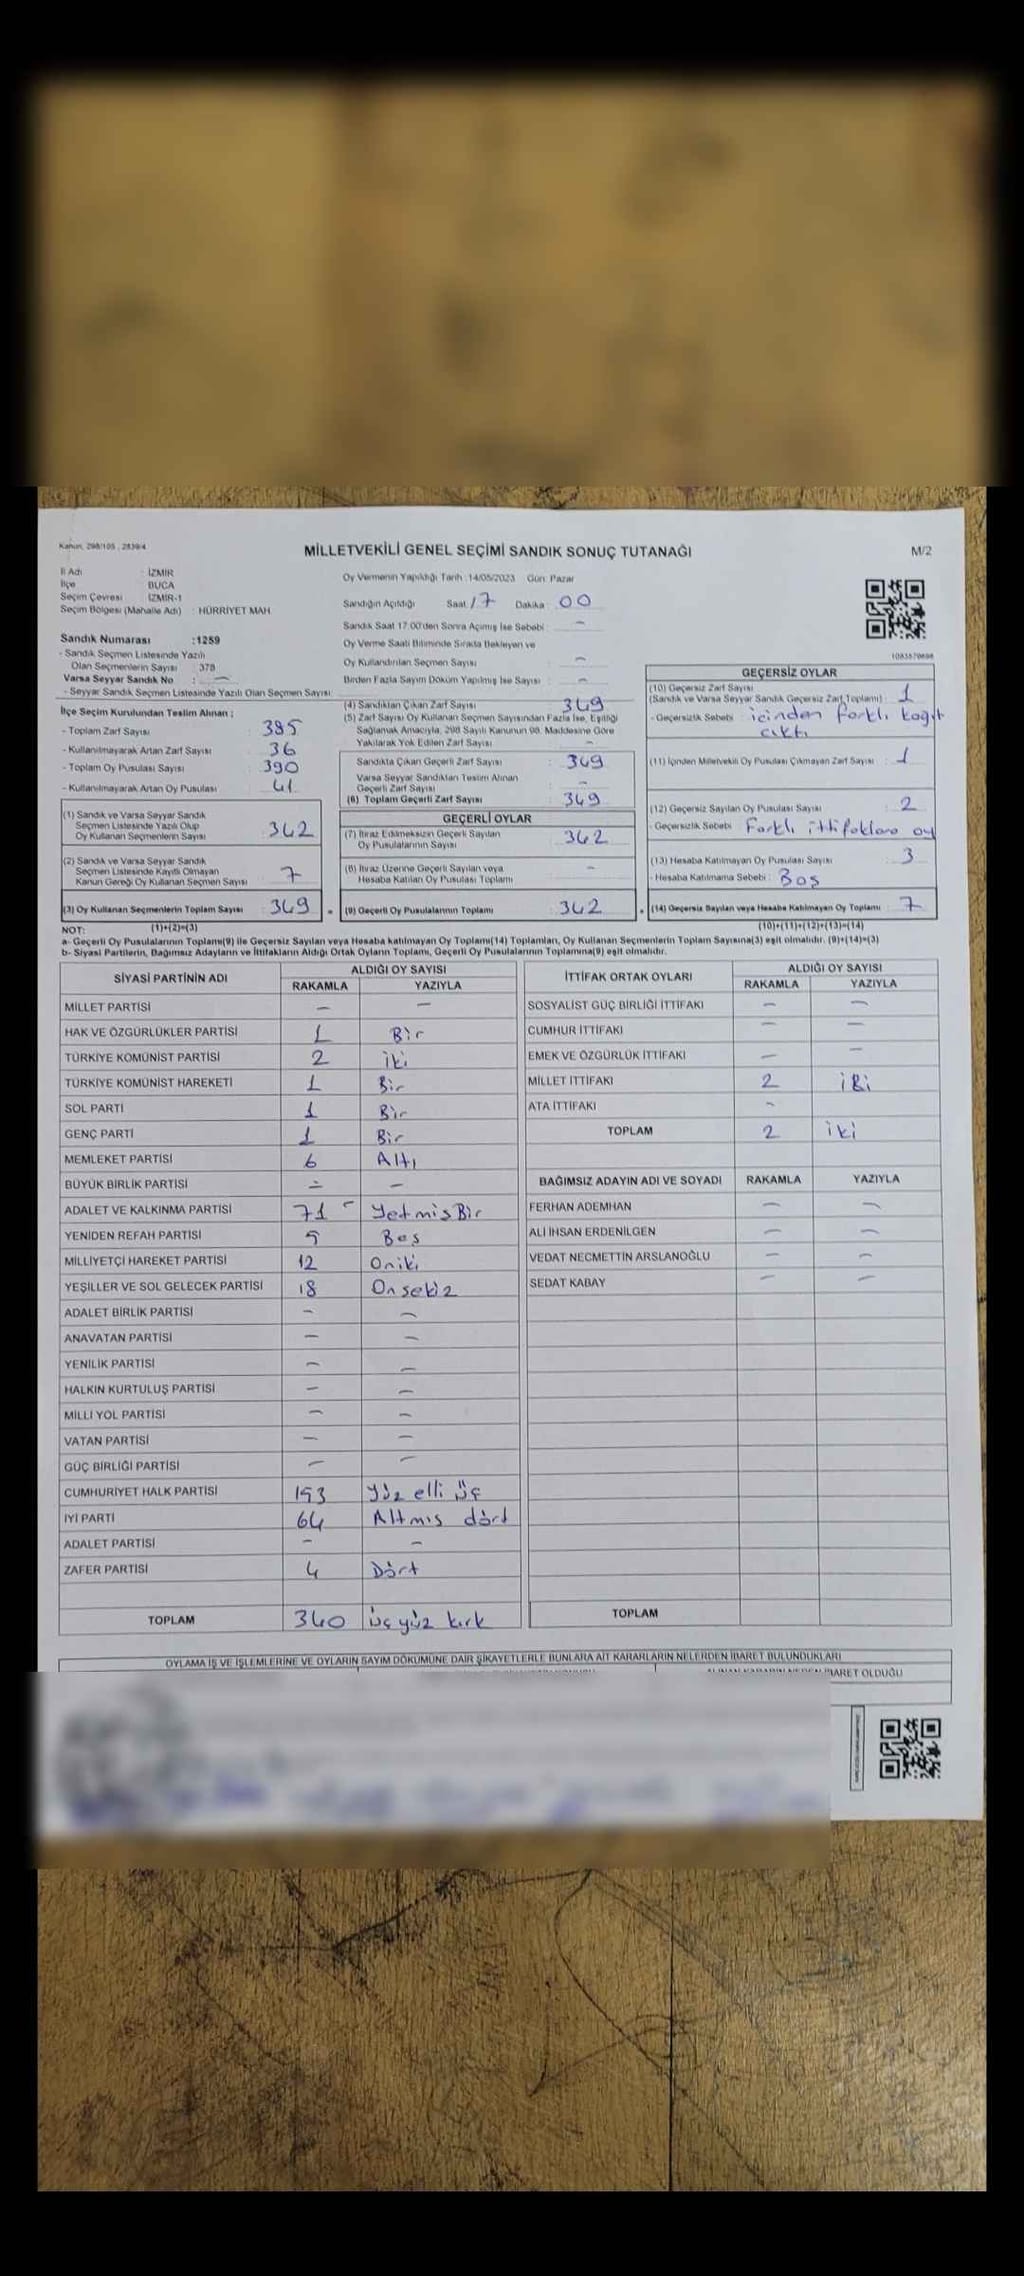 Kanun, 298/105 , 2839/4
MİLLETVEKİLİ GENEL SEÇİMİ SANDIK SONUÇ TUTANAĞI
M/2
İl Adı : İZMİR
İlçe BUCA
Seçim Çevresi : İZMİR-1
Seçim Bölgesi (Mahalle Adı) : HÜRRİYET MAH.
Oy Vermenin Yapıldığı Tarih : 14/05/2023 Gün: Pazar
Sandığın Açıldığı Saat 17 Dakika : 00
Sandık Saat 17:00'den Sonra Açılmış İse Sebebi : -
Oy Verme Saati Bitiminde Sırada Bekleyen ve
Oy Kullandırılan Seçmen Sayısı : -
Birden Fazla Sayım Döküm Yapılmış İse Sayısı : -
Sandık Numarası :1259
- Sandık Seçmen Listesinde Yazılı
Olan Seçmenlerin Sayısı : 378
Varsa Seyyar Sandık No : -
- Seyyar Sandık Seçmen Listesinde Yazılı Olan Seçmen Sayısı:
İlçe Seçim Kurulundan Teslim Alınan :
- Toplam Zarf Sayısı : 385
- Kullanılmayarak Artan Zarf Sayısı : 36
- Toplam Oy Pusulası Sayısı : 390
- Kullanılmayarak Artan Oy Pusulası : 41
(1) Sandık ve Varsa Seyyar Sandık
Seçmen Listesinde Yazılı Olup
Oy Kullanan Seçmenlerin Sayısı : 342
(2) Sandık ve Varsa Seyyar Sandık
Seçmen Listesinde Kayıtlı Olmayan
Kanun Gereği Oy Kullanan Seçmen Sayısı : 7
(3) Oy Kullanan Seçmenlerin Toplam Sayısı : 349
(4) Sandıktan Çıkan Zarf Sayısı : 349
(5) Zarf Sayısı Oy Kullanan Seçmen Sayısından Fazla İse, Eşitliği
Sağlamak Amacıyla, 298 Sayılı Kanunun 98. Maddesine Göre
Yakılarak Yok Edilen Zarf Sayısı : -
Sandıkta Çıkan Geçerli Zarf Sayısı : 349
Varsa Seyyar Sandıktan Teslim Alınan
Geçerli Zarf Sayısı : -
(6) Toplam Geçerli Zarf Sayısı : 349
GEÇERLİ OYLAR
(7) İtiraz Edilmeksizin Geçerli Sayılan
Oy Pusulalarının Sayısı : 342
(8) İtiraz Üzerine Geçerli Sayılan veya
Hesaba Katılan Oy Pusulası Toplamı : -
(9) Geçerli Oy Pusulalarının Toplamı : 342
GEÇERSİZ OYLAR
(10) Geçersiz Zarf Sayısı
(Sandık ve Varsa Seyyar Sandık Geçersiz Zarf Toplamı) : 1
- Geçersizlik Sebebi : içinden farklı kağıt
çıktı
(11) İçinden Milletvekili Oy Pusulası Çıkmayan Zarf Sayısı : 1
(12) Geçersiz Sayılan Oy Pusulası Sayısı : 2
- Geçersizlik Sebebi : Farklı ittifaklara oy
(13) Hesaba Katılmayan Oy Pusulası Sayısı : 3
- Hesaba Katılmama Sebebi : Boş
(14) Geçersiz Sayılan veya Hesaba Katılmayan Oy Toplamı : 7
NOT: (1)+(2)=(3) (10)+(11)+(12)+(13)=(14)
a- Geçerli Oy Pusulalarının Toplamı(9) ile Geçersiz Sayılan veya Hesaba katılmayan Oy Toplamı(14) Toplamları, Oy Kullanan Seçmenlerin Toplam Sayısına(3) eşit olmalıdır. (9)+(14)=(3)
b- Siyasi Partilerin, Bağımsız Adayların ve İttifakların Aldığı Ortak Oyların Toplamı, Geçerli Oy Pusulalarının Toplamına(9) eşit olmalıdır.
SİYASİ PARTİNİN ADI ALDIĞI OY SAYISI
RAKAMLA YAZIYLA
MİLLET PARTİSİ - -
HAK VE ÖZGÜRLÜKLER PARTİSİ 1 Bir
TÜRKİYE KOMÜNİST PARTİSİ 2 iki
TÜRKİYE KOMÜNİST HAREKETİ 1 Bir
SOL PARTİ 1 Bir
GENÇ PARTİ 1 Bir
MEMLEKET PARTİSİ 6 Altı
BÜYÜK BİRLİK PARTİSİ - -
ADALET VE KALKINMA PARTİSİ 71 - YetmişBir
YENİDEN REFAH PARTİSİ 5 Beş
MİLLİYETÇİ HAREKET PARTİSİ 12 Oniki
YEŞİLLER VE SOL GELECEK PARTİSİ 18 Onsekiz
ADALET BİRLİK PARTİSİ - -
ANAVATAN PARTİSİ - -
YENİLİK PARTİSİ - -
HALKIN KURTULUŞ PARTİSİ - -
MİLLİ YOL PARTİSİ - -
VATAN PARTİSİ - -
GÜÇ BİRLİĞİ PARTİSİ - -
CUMHURİYET HALK PARTİSİ 153 Yüz elli üç
İYİ PARTİ 64 Altmış dört
ADALET PARTİSİ - -
ZAFER PARTİSİ 4 Dört
TOPLAM 340 üç yüz kırk
İTTİFAK ORTAK OYLARI ALDIĞI OY SAYISI
RAKAMLA YAZIYLA
SOSYALİST GÜÇ BİRLİĞİ İTTİFAKI - -
CUMHUR İTTİFAKI - -
EMEK VE ÖZGÜRLÜK İTTİFAKI - -
MİLLET İTTİFAKI 2 iki
ATA İTTİFAKI -
TOPLAM 2 iki
BAĞIMSIZ ADAYIN ADI VE SOYADI RAKAMLA YAZIYLA
FERHAN ADEMHAN - -
ALİ İHSAN ERDENİLGEN - -
VEDAT NECMETTİN ARSLANOĞLU - -
SEDAT KABAY - -
TOPLAM
OYLAMA İŞ VE İŞLEMLERİNE VE OYLARIN SAYIM DÖKÜMÜNE DAİR ŞİKAYETLERLE BUNLARA AİT KARARLARIN NELERDEN İBARET BULUNDUKLARI
İBARET OLDUĞU